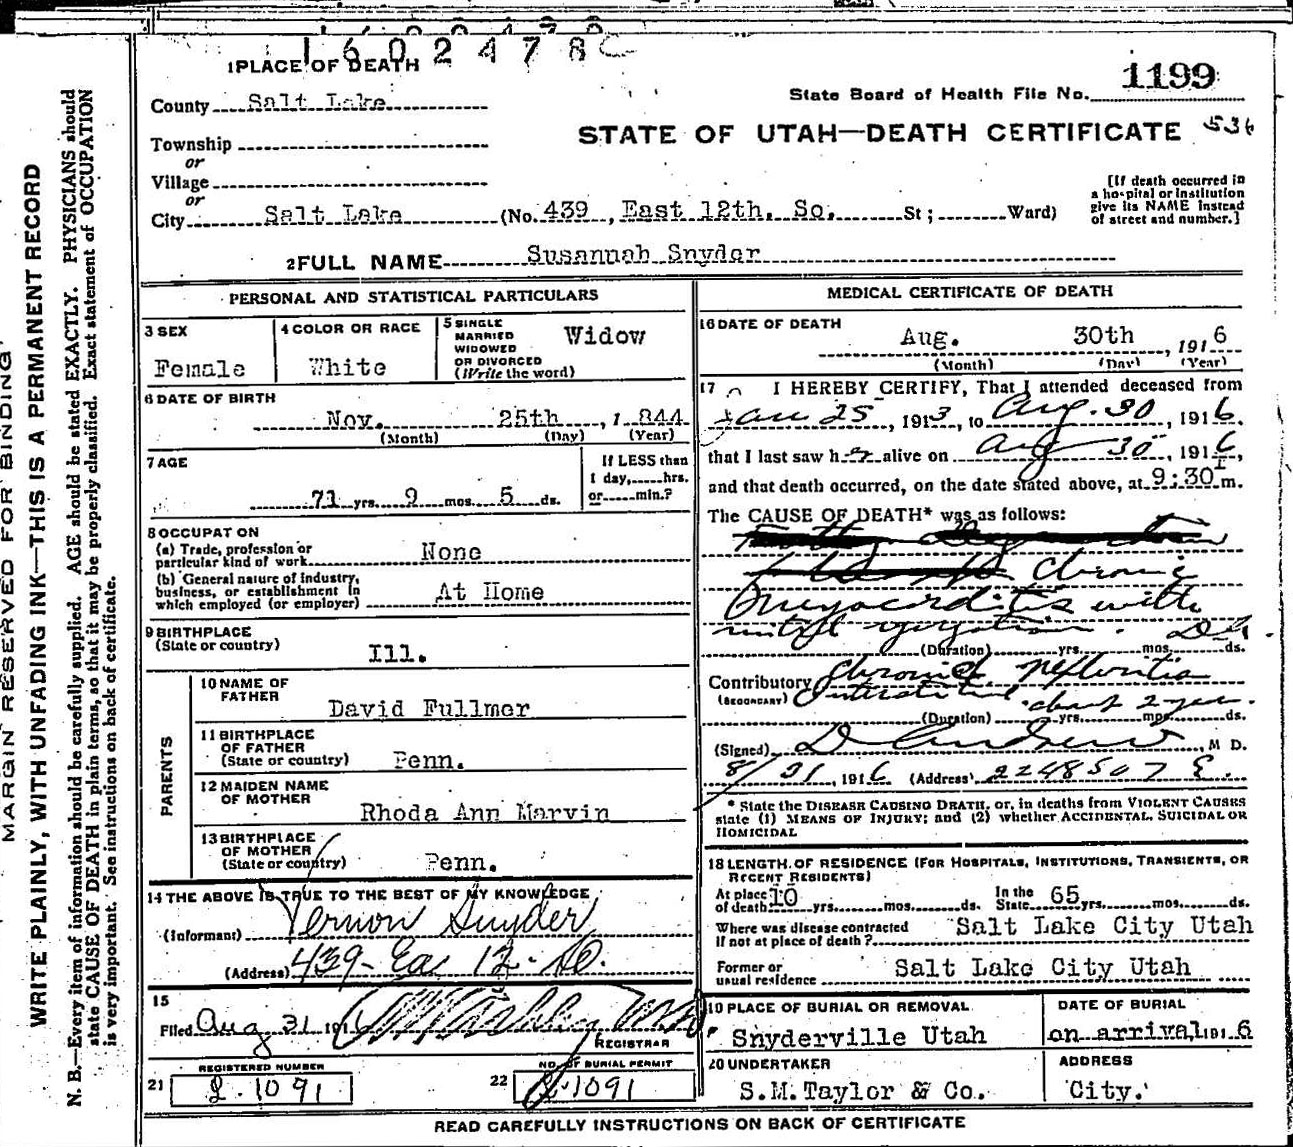 1602478
1 PLACE OF DEATH
1199
County Salt Lake
State Board of Health File No.
STATE OF UTAH—DEATH CERTIFICATE 536
Township
or
Village
or
City Salt Lake (No. 439, East 12th. So. St; Ward)
[If death occurred in
a hospital or institution
give its NAME instead
of street and number.]
2 FULL NAME Susannah Snyder
PERSONAL AND STATISTICAL PARTICULARS
3 SEX
Female
4 COLOR OR RACE
White
5 SINGLE
MARRIED
WIDOWED
OR DIVORCED
(Write the word)
Widow
6 DATE OF BIRTH
Nov. 25th, 1844
(Month) (Day) (Year)
7 AGE
71 yrs. 9 mos. 5 ds.
If LESS than
1 day,.....hrs.
or.....min.?
8 OCCUPATION
(a) Trade, profession or
particular kind of work None
(b) General nature of industry,
business, or establishment in
which employed (or employer) At Home
9 BIRTHPLACE
(State or country) Ill.
PARENTS
10 NAME OF
FATHER
David Fullmer
11 BIRTHPLACE
OF FATHER
(State or country) Penn.
12 MAIDEN NAME
OF MOTHER
Rhoda Ann Marvin
13 BIRTHPLACE
OF MOTHER
(State or country) Penn.
14 THE ABOVE IS TRUE TO THE BEST OF MY KNOWLEDGE
(Informant) Vernon Snyder
(Address) 439- Ea 12- So.
15
Filed Aug 31 191
REGISTRAR
REGISTERED NUMBER
21 2.1091
NO. OF BURIAL PERMIT
22 1091
MEDICAL CERTIFICATE OF DEATH
16 DATE OF DEATH
Aug. 30th, 1916
(Month) (Day) (Year)
17 I HEREBY CERTIFY, That I attended deceased from
Jan 25, 1913, to Aug. 30, 1916.
that I last saw her alive on Aug 30, 1916,
and that death occurred, on the date stated above, at 9:30 m.
The CAUSE OF DEATH* was as follows:
Chronic
Myocarditis with
mitral
(Duration) yrs. mos. ds.
Contributory Chronic Nephritis
(SECONDARY) Interstitial about 2 yrs.
(Duration) yrs. mos. ds.
(Signed) D Andrews, M D.
8/31, 1916 (Address) 2248 5 07 E.
* State the DISEASE CAUSING DEATH, or, in deaths from VIOLENT CAUSES
state (1) MEANS OF INJURY; and (2) whether ACCIDENTAL, SUICIDAL OR
HOMICIDAL
18 LENGTH OF RESIDENCE (FOR HOSPITALS, INSTITUTIONS, TRANSIENTS, OR
RECENT RESIDENTS)
At place of death 10 yrs. mos. ds. In the State 65 yrs. mos. ds.
Where was disease contracted
if not at place of death? Salt Lake City Utah
Former or
usual residence Salt Lake City Utah
19 PLACE OF BURIAL OR REMOVAL
Snyderville Utah
DATE OF BURIAL
on arrival, 1916
20 UNDERTAKER
S.M. Taylor & Co.
ADDRESS
City.
READ CAREFULLY INSTRUCTIONS ON BACK OF CERTIFICATE
MARGIN RESERVED FOR BINDING
WRITE PLAINLY, WITH UNFADING INK—THIS IS A PERMANENT RECORD
N. B.—Every item of information should be carefully supplied. AGE should be stated EXACTLY. PHYSICIANS should
state CAUSE OF DEATH in plain terms, so that it may be properly classified. Exact statement of OCCUPATION
is very important. See instructions on back of certificate.